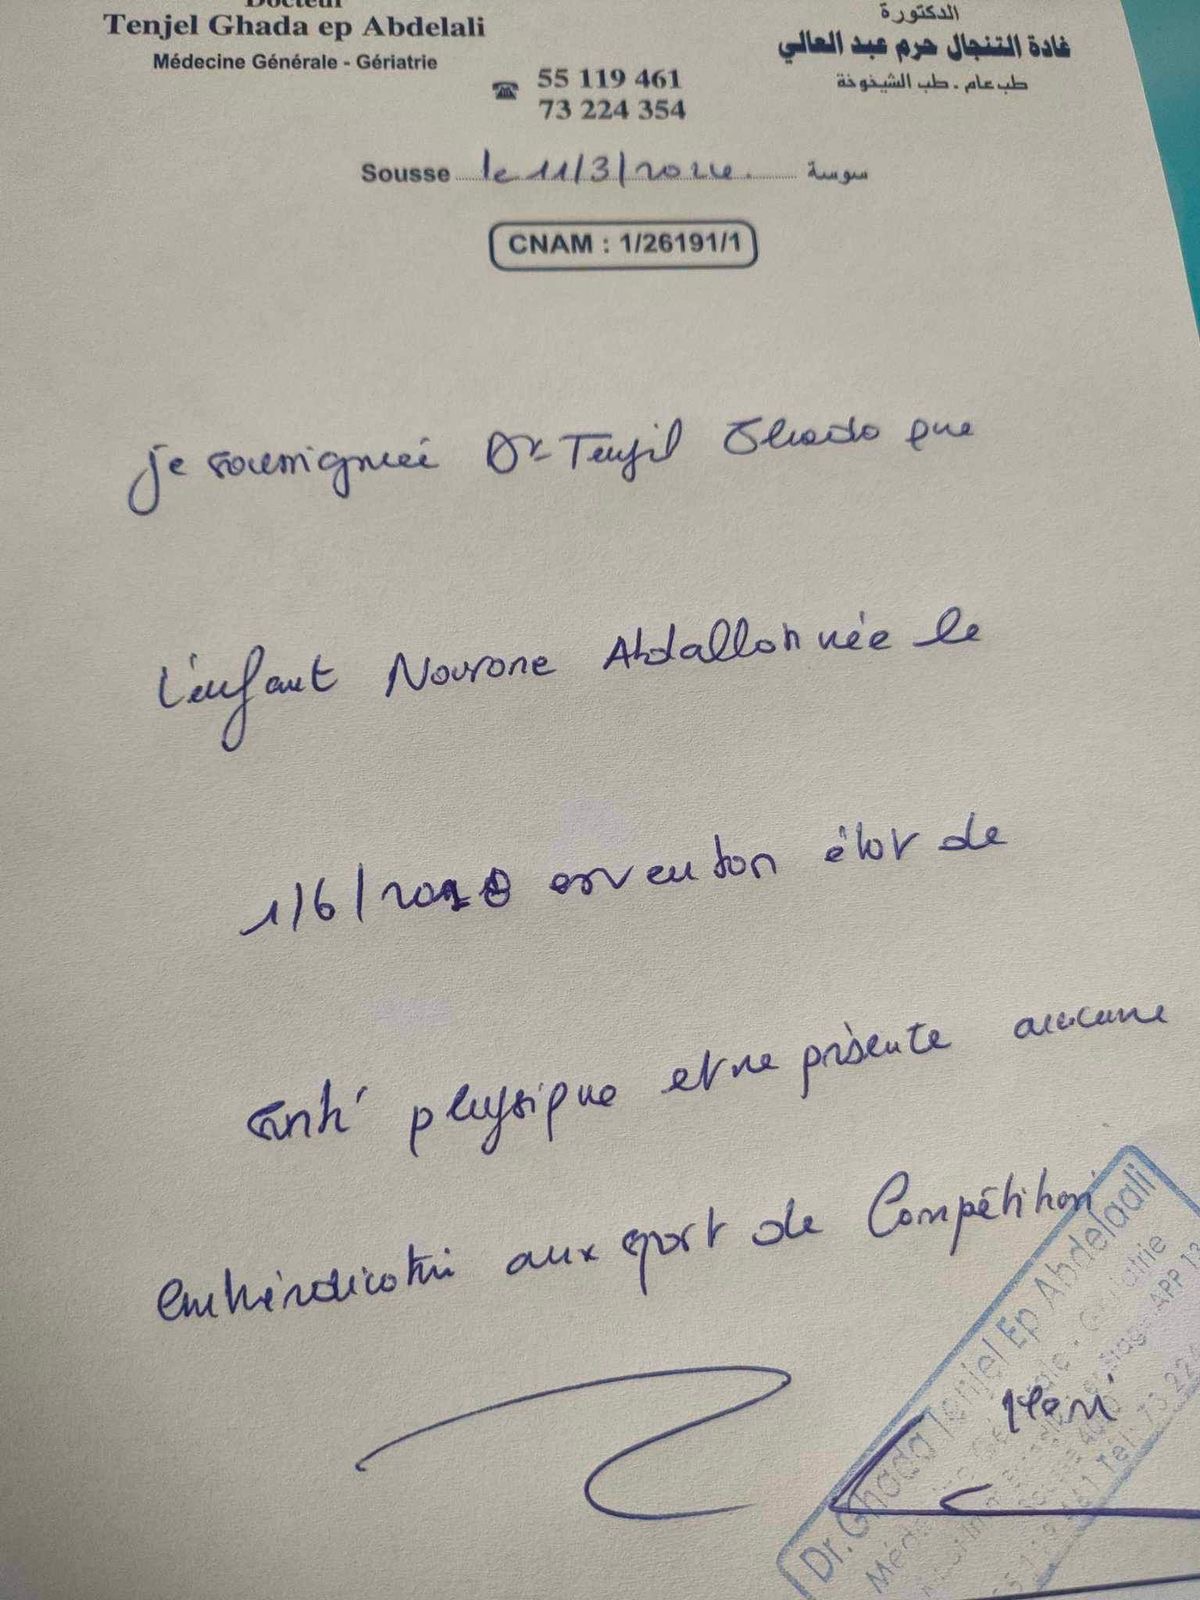 Docteur
Tenjel Ghada ep Abdelali
Médecine Générale - Gériatrie
الدكتورة
غادة التنجال حرم عبد العالي
طب عام . طب الشيخوخة
☎ 55 119 461
73 224 354
Sousse le 11/3/2024. سوسة
CNAM : 1/26191/1
je soussignée Dr Tenjil Ghada que
L'enfant Nourane Abdallah née le
1/6/2018 est en bon état de
santé physique et ne présente aucune
contrindication aux sport de Compétition
Dr. Ghada Tenjel Ep Abdelaali